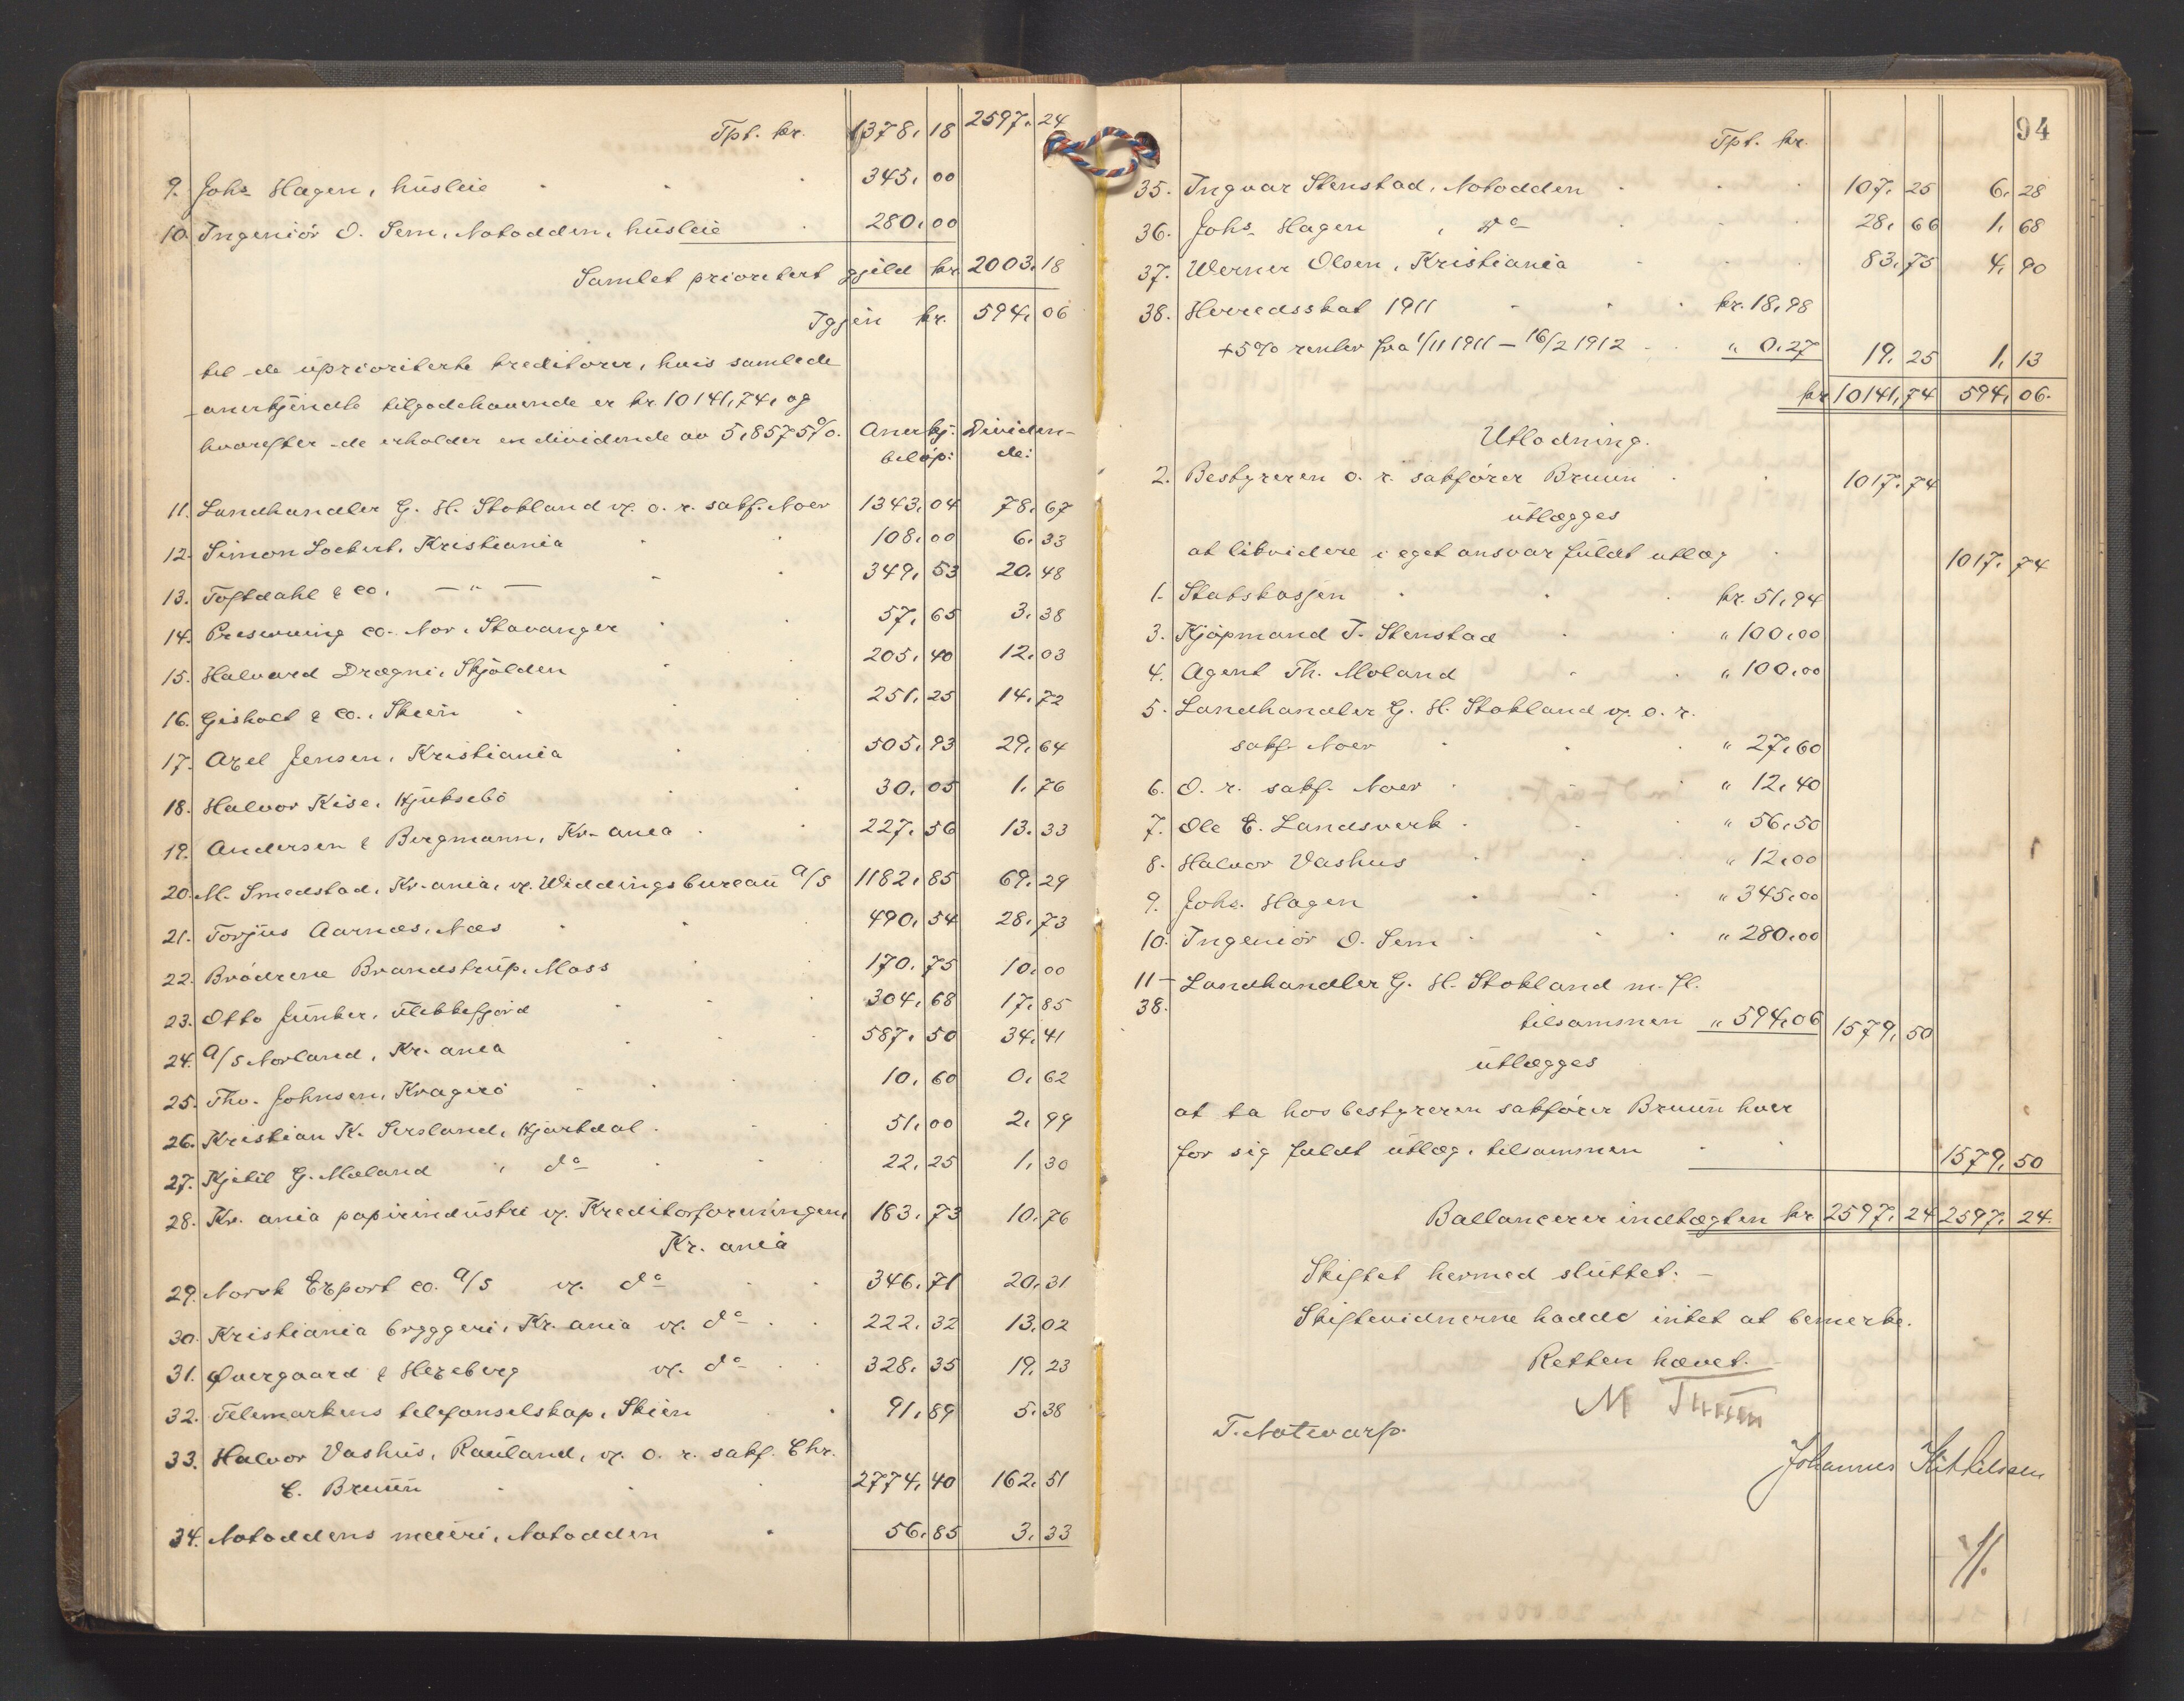 Tpt. kr. 1378,18 2597,24
9. Johs Hagen, husleie 345,00
10. Ingeniör O. Sem, Notodden, husleie 280,00
Samlet prioritert gjeld kr. 2003,18
Igjen kr. 594,06
til de uprioriterte kreditorer, hvis samlede
anerkjendte tilgodehavende er kr. 10141,74, og
hvorefter de erholder en dividende av 5,8575%. Anerkj. Dividen-
beløp: de:
11. Landhandler G. H. Stokland v. o. r. sakf. Noer 1343,04 78,67
12. Simon Loekert, Kristiania 108,00 6,33
13. Toftdahl & co. —„— 349,53 20,48
14. Preserving co. Nor, Stavanger 57,65 3,38
15. Halvard Drægni, Skjolden 205,40 12,03
16. Gisholt & co., Skien 251,25 14,72
17. Axel Jensen, Kristiania 505,93 29,64
18. Halvor Kise, Hjuksebö 30,05 1,76
19. Andersen & Bergmann, Kr.ania 227,56 13,33
20. M. Smedstad, Kr.ania, v. Widdingsbureau A/S 1182,85 69,29
21. Torjus Aarnæs, Næs 490,54 28,73
22. Brödrene Brandstrup, Moss 170,75 10,00
23. Otto Junker, Flekkefjord 304,68 17,85
24. A/S Norland, Kr.ania 587,50 34,41
25. Thv. Johnsen, Kragerö 10,60 0,62
26. Kristian K. Sersland, Hjartdal 51,00 2,99
27. Kjetil G. Moland, do 22,25 1,30
28. Kr.ania papirindustri v. Kreditorforeningen, 183,73 10,76
Kr.ania
29. Norsk Export co. A/S v. do 346,71 20,31
30. Kristiania bryggeri, Kr.ania v. do 222,32 13,02
31. Øvergaard & Hexeberg v. do 328,35 19,23
32. Telemarkens telefonselskap, Skien 91,89 5,38
33. Halvor Vashus, Rauland, v. o. r. sakf. Chr.
C. Bruun 2774,40 162,51
34. Notoddens meieri, Notodden 56,85 3,33
94
Tpt. kr.
35. Ingvar Stenstad, Notodden 107,25 6,28
36. Johs Hagen, do 28,66 1,68
37. Werner Olsen, Kristiania 83,75 4,90
38. Herredsskat 1911 kr. 18,98
+5% renter fra 1/11 1911 – 16/2 1912 „ 0,27 19,25 1,13
kr. 10141,74 594,06.
Utlodning.
2. Bestyreren o. r. sakfører Bruun 1017,74
utlægges
at likvidere i eget ansvar fuldt utlæg 1017,74
1. Statskassen kr. 51,94
3. Kjøpmand I. Stenstad „ 100,00
4. Agent Th. Moland „ 100,00
5. Landhandler G. H. Stokland v. o. r.
sakf. Noer „ 27,60
6. O. r. sakf. Noer „ 12,40
7. Ole E. Landsverk „ 56,50
8. Halvor Vashus „ 12,00
9. Johs. Hagen „ 345,00
10. Ingeniör O. Sem „ 280,00
11– Landhandler G. H. Stokland m. fl.
38. tilsammen „ 594,06 1579,50
utlægges
at ta hos bestyreren sakfører Bruun hver
for sig fuldt utlæg, tilsammen 1579,50
Ballancerer indtægten kr. 2597,24 2597,24.
Skiftet hermed sluttet. —
Skiftevidnerne hadde intet at bemerke.
Retten hævet.
T. Notevarp.
Johannes Kittilsen